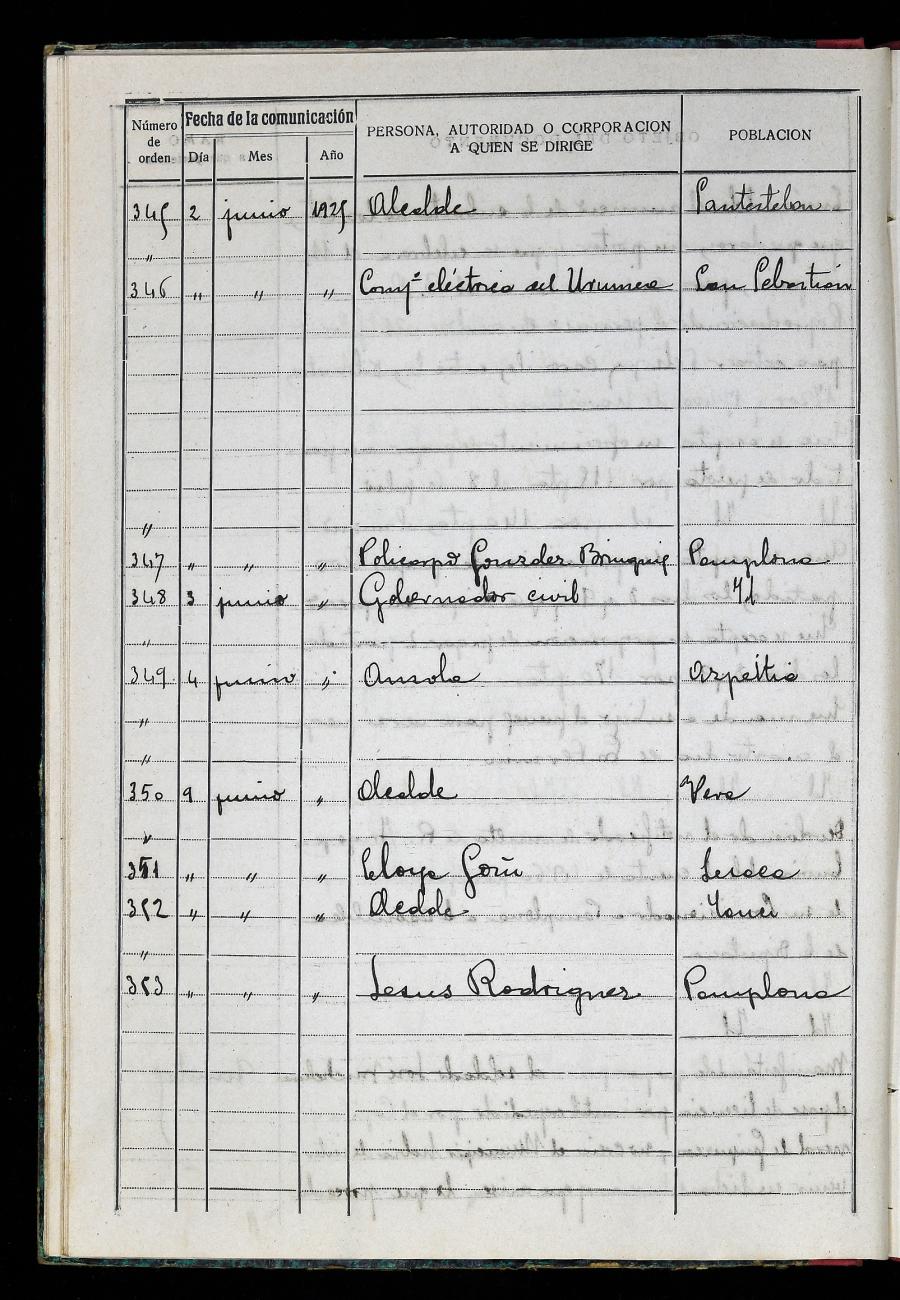 Número de orden Fecha de la comunicación PERSONA, AUTORIDAD O CORPORACION A QUIEN SE DIRIGE POBLACION
Día Mes Año
345 2 junio 1925 Alcalde Santesteban
"
346 " " " Compª eléctrica del Urumea San Sebastián
"
347 " " " Policarpo Pamplona
348 3 junio " Gobernador civil Id
"
349 4 junio " Ansola Azpeitia
"
"
350 9 junio " Alcalde Vera
"
351 " " " Eloya Goñi Lesaca
352 " " " Alcalde Yanci
"
353 " " " Jesus Rodriguez Pamplona